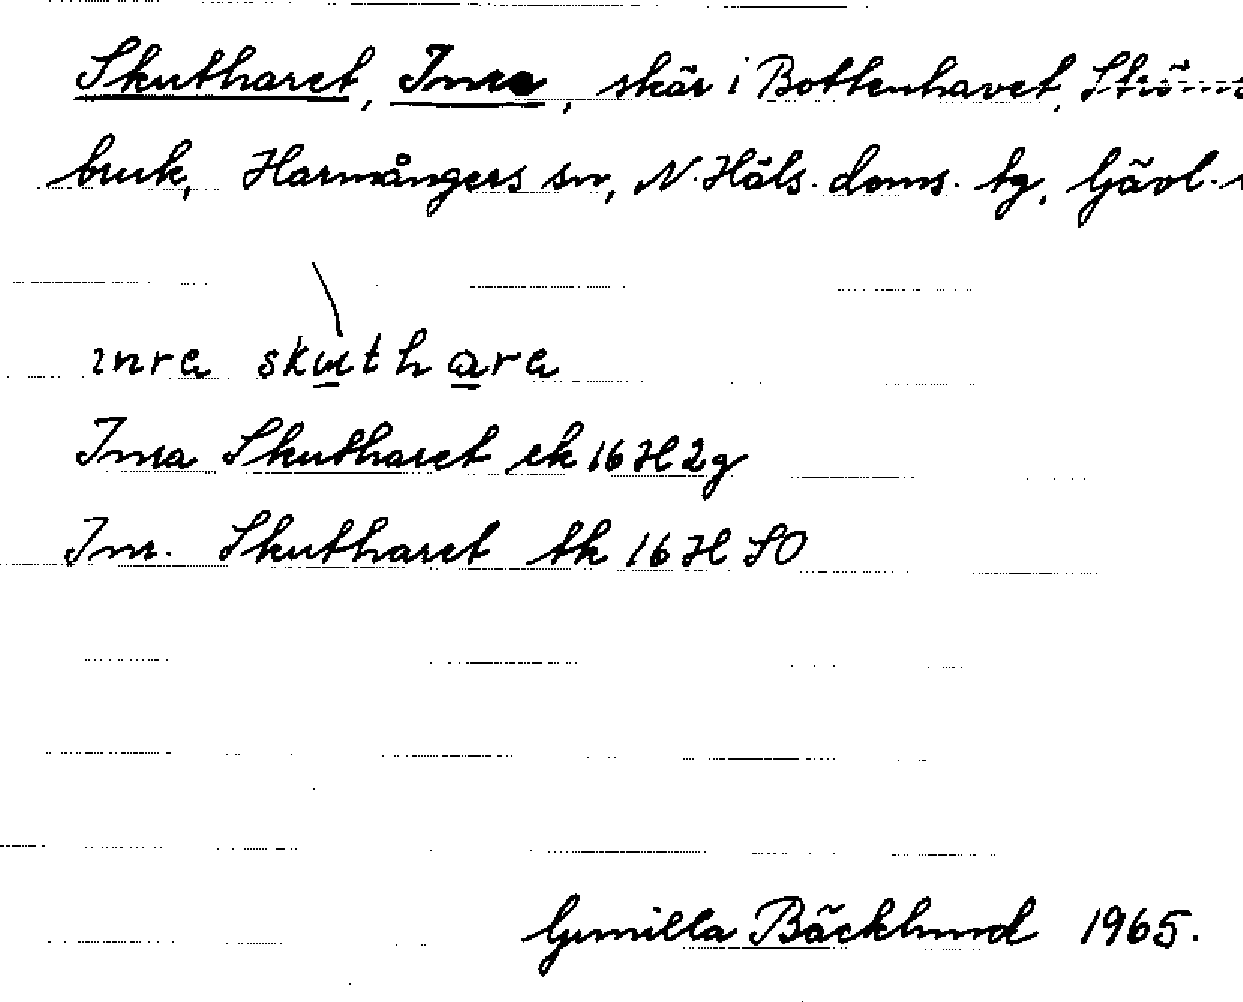 Skutharet, Inra, skär i Bottenhavet, Ströms
bruk, Harmångers sn, N. Häls. doms. tg, Gävl.
inra skuthara
Inra Skutharet ek 16 H 2g
Inr. Skutharet tk 16 H SO
Gunilla Bäcklund 1965.